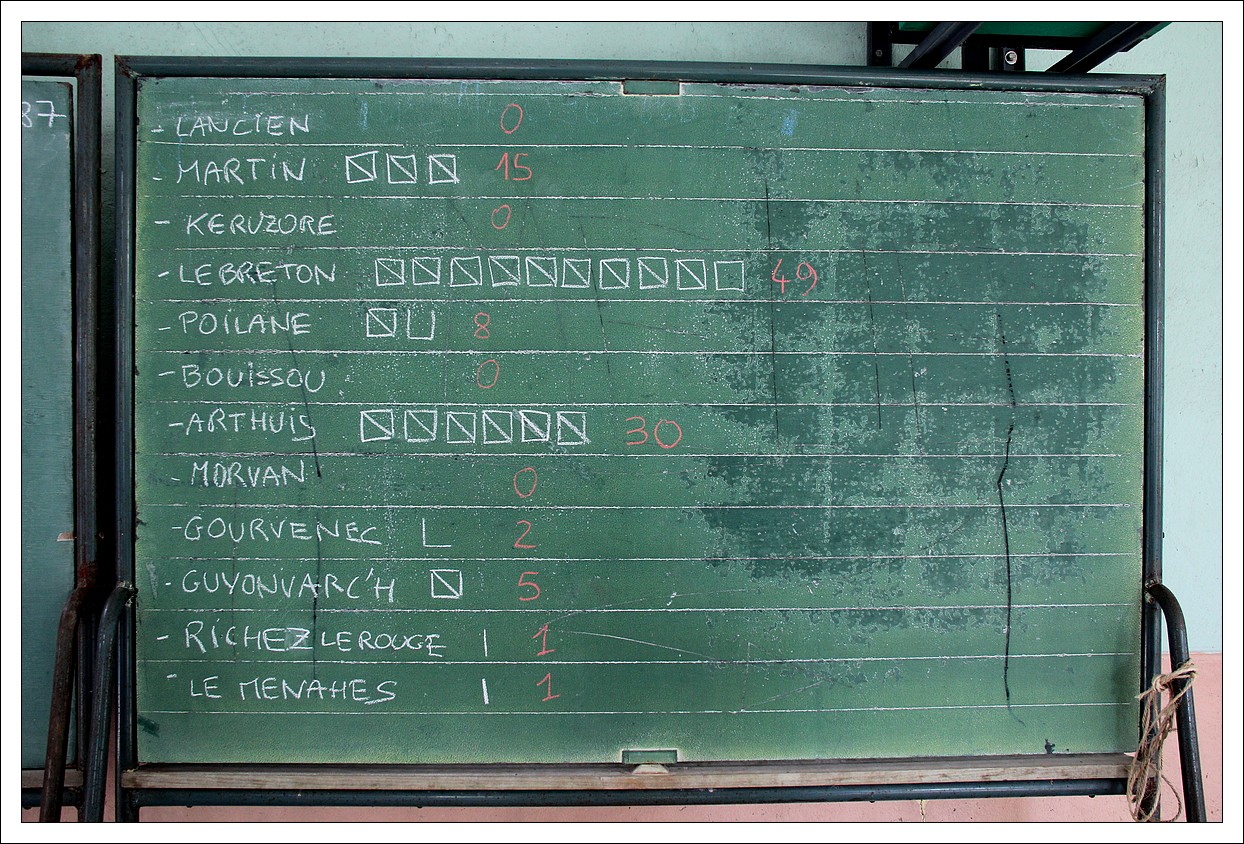 37
- LANCIEN 0
- MARTIN 15
- KERUZORE 0
- LE BRETON 49
- POILANE 8
- BOUISSOU 0
- ARTHUIS 30
- MORVAN 0
- GOURVENEC 2
- GUYONVARC'H 5
- RICHEZ LEROUGE | 1
- LE MENAHES | 1